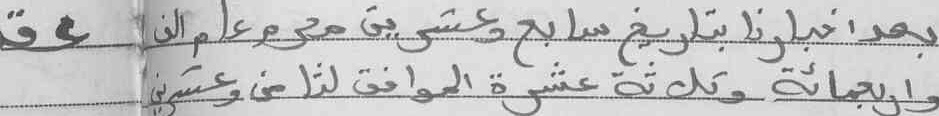 بعد اخبارنا بتاريخ سابع وعشرين محرم عام الف
واربعمائة وثلاثة عشرة الموافق لثامن وعشرين